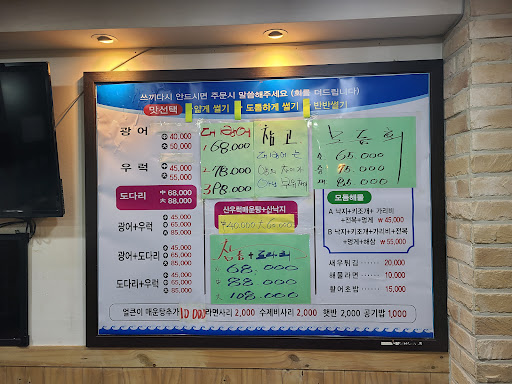 쓰끼다시 안드시면 주문시 말씀해주세요 (회를 더드립니다)
맛선택 얇게 썰기 도톰하게 썰기 반반썰기
광어 中 40,000
大 50,000
우럭 中 45,000
大 55,000
도다리 中 68,000
大 88,000
광어+우럭 小 45,000
中 65,000
大 85,000
광어+도다리 小 45,000
中 65,000
大 85,000
도다리+우럭 小 45,000
中 65,000
大 85,000
대광어
1.68,000
2.78,000
3.98.000
참고
산우럭매운탕+산낙지
中40,000 大60,000
68.000
88.000
108.000
모듬회
65.000
75.000
85.000
모듬해물
A 낙지+키조개+가리비
+전복+멍게 ₩ 45,000
B 낙지+키조개+가리비+전복
+멍게+해삼 ₩ 55,000
새우튀김 ...... 20,000
해물라면 ...... 10,000
활어초밥 ...... 15,000
얼큰이 매운탕추가 10,000 라면사리 2,000 수제비사리 2,000 햇반 2,000 공기밥 1,000